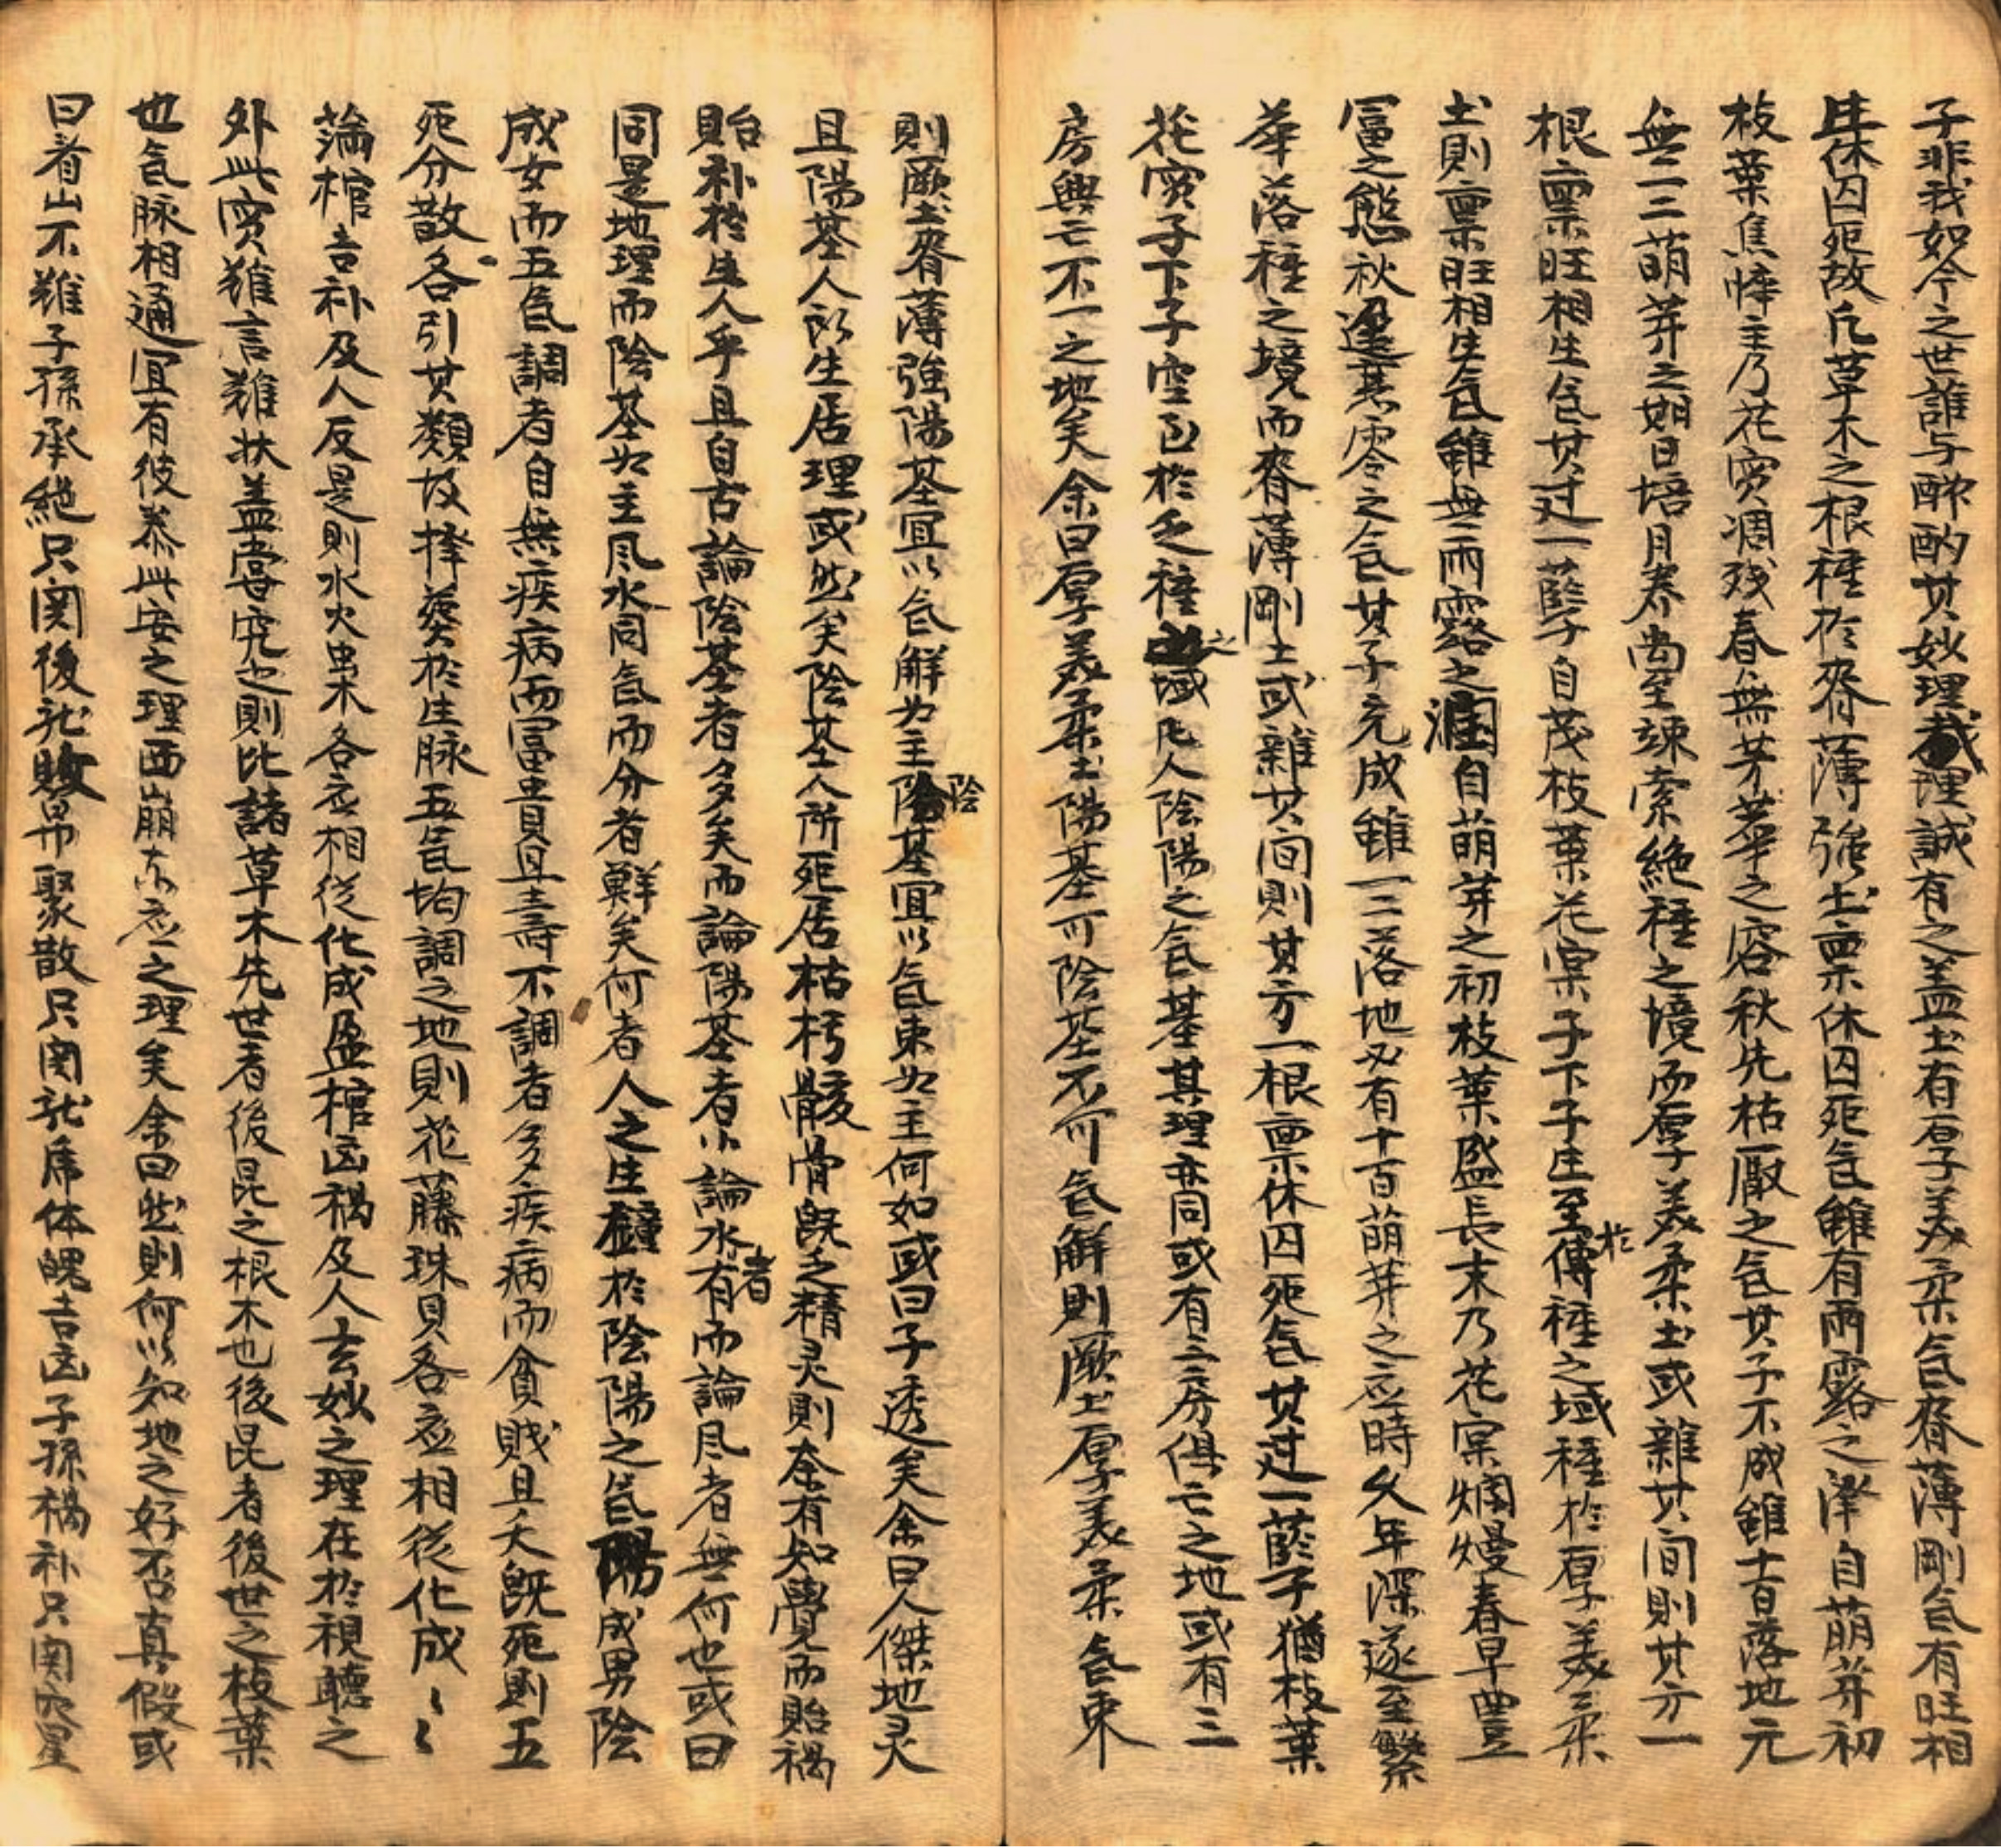 子非我如今之世誰与酧酌其妙理哉理誠有之盖土有厚美柔气脊薄剛气有旺相
生休囚死故凡草木之根種於脊薄強土禀休囚死气雖有雨露之澤自萌芽初
枝葉焦悴主乃花实凋残春無芳華之容秋先枯一厰之气其子不成雖十百落地元
無一二萌芽之如日培月养尚至疎索絶種之境而厚美柔土或雜其间則其方一
根禀旺相生气其过一蔀子自茂枝葉花実子下子生至於傳種之域種於厚美柔
土則禀旺相生气雖無雨露之潤自萌芽之初枝葉盛長末乃花実爛熳春早豊
冨之態秋逞其零之气其子充成雖一二落地必有十百萌芽之应時久年深遂至繁
華落種之境而脊薄剛土或雜其间則其方一根禀休囚死气其过一蔀子猶枝葉
花实子下子空已於乏種之域凡人陰陽之气基其理亦同或有二三房俱亡之地或有三
房興亡不一之地矣余曰厚美柔土陽基可陰基不可气解則厥土厚美柔气束
則厥土脊薄強陽基宜以气解为主陰基宜以气束为主何如或曰子透矣余曰人傑地灵
且陽基人所生居理或然矣陰基人所死居枯朽骸骨既乏精灵則奈有知覺而貽禍
貽补於生人乎且自古論陰基者多矣而論陽基者小論水者有而論风者無何也或曰
同是地理而陰基为主风水同气而分者鮮矣何者人之生於陰陽之气陽成男陰
成女而五气調者自無疾病而冨貴且壽不調者多疾病而貧賎且夭既死則五
死分散各引其類故擇葬於生脉五气均調之地則花藤珠貝各应相從化成〻
蒲棺吉补及人反是則水火虫木各应相從化成盈棺凶禍及人玄妙之理在於視聴之
外此实難言難状盖嘗究之則比諸草木先世者後昆之根木也後昆者後世之枝葉
也气脉相通宜有彼泰此安之理西崩东应之理矣余曰然則何以知地之好否真假或
曰看山不難子孫承絶只関後龙败帛聚散只関龙虎体魄吉凶子孫禍补只関穴星